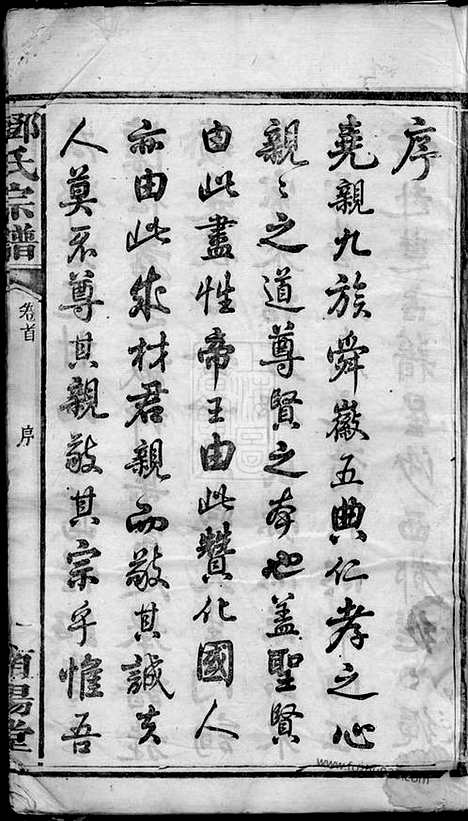 序
堯親九族舜徽五典仁孝之心
親〻之道尊賢之本也蓋聖賢
由此盡性帝王由此贊化國人
亦由此成材君親而敬其誠夫
人莫不尊其親敬其宗乎惟吾
鄧氏宗譜
卷首
序
一
南陽堂